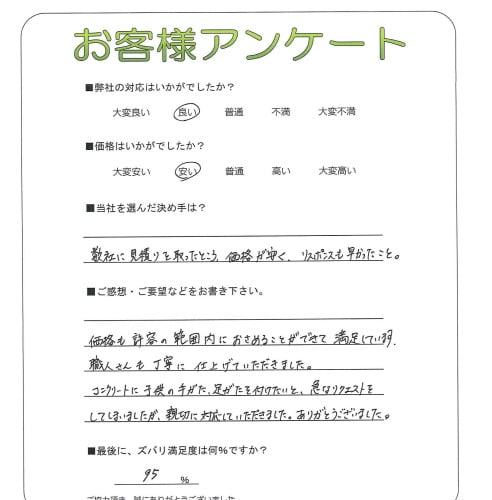 お客様アンケート
■弊社の対応はいかがでしたか？
大変良い 良い 普通 不満 大変不満
■価格はいかがでしたか？
大変安い 安い 普通 高い 大変高い
■当社を選んだ決め手は？
数社に見積りを取ったところ、価格が安く、リスポンスも早かったこと。
■ご感想・ご要望などをお書き下さい。
価格も許容の範囲内におさめることができて満足しています。
職人さんも丁寧に仕上げていただきました。
コンクリートに子供の手がた、足がたを付けたいと、急なリクエストを
してしまいましたが、親切に対応していただきました。ありがとうございました。
■最後に、ズバリ満足度は何%ですか？
95 %
ご協力頂き、誠にありがとうございました